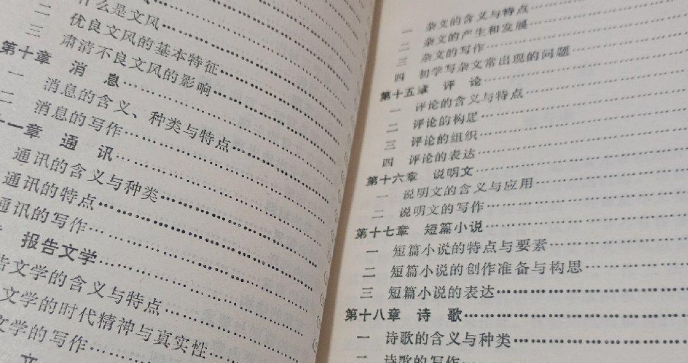 什么是文风
二 优良文风的基本特征
三 肃清不良文风的影响
第十章 消 息
一 消息的含义、种类与特点
二 消息的写作
一章 通 讯
通讯的含义与种类
通讯的特点
通讯的写作
报告文学
告文学的含义与特点
文学的时代精神与真实性
文学的写作
文
一 杂文的含义与特点
二 杂文的产生和发展
三 杂文的写作
四 初学写杂文常出现的问题
第十五章 评 论
一 评论的含义与特点
二 评论的构思
三 评论的组织
四 评论的表达
第十六章 说明文
一 说明文的含义与应用
二 说明文的写作
第十七章 短篇小说
一 短篇小说的特点与要素
二 短篇小说的创作准备与构思
三 短篇小说的表达
第十八章 诗 歌
一 诗歌的含义与种类
二 诗歌的写作